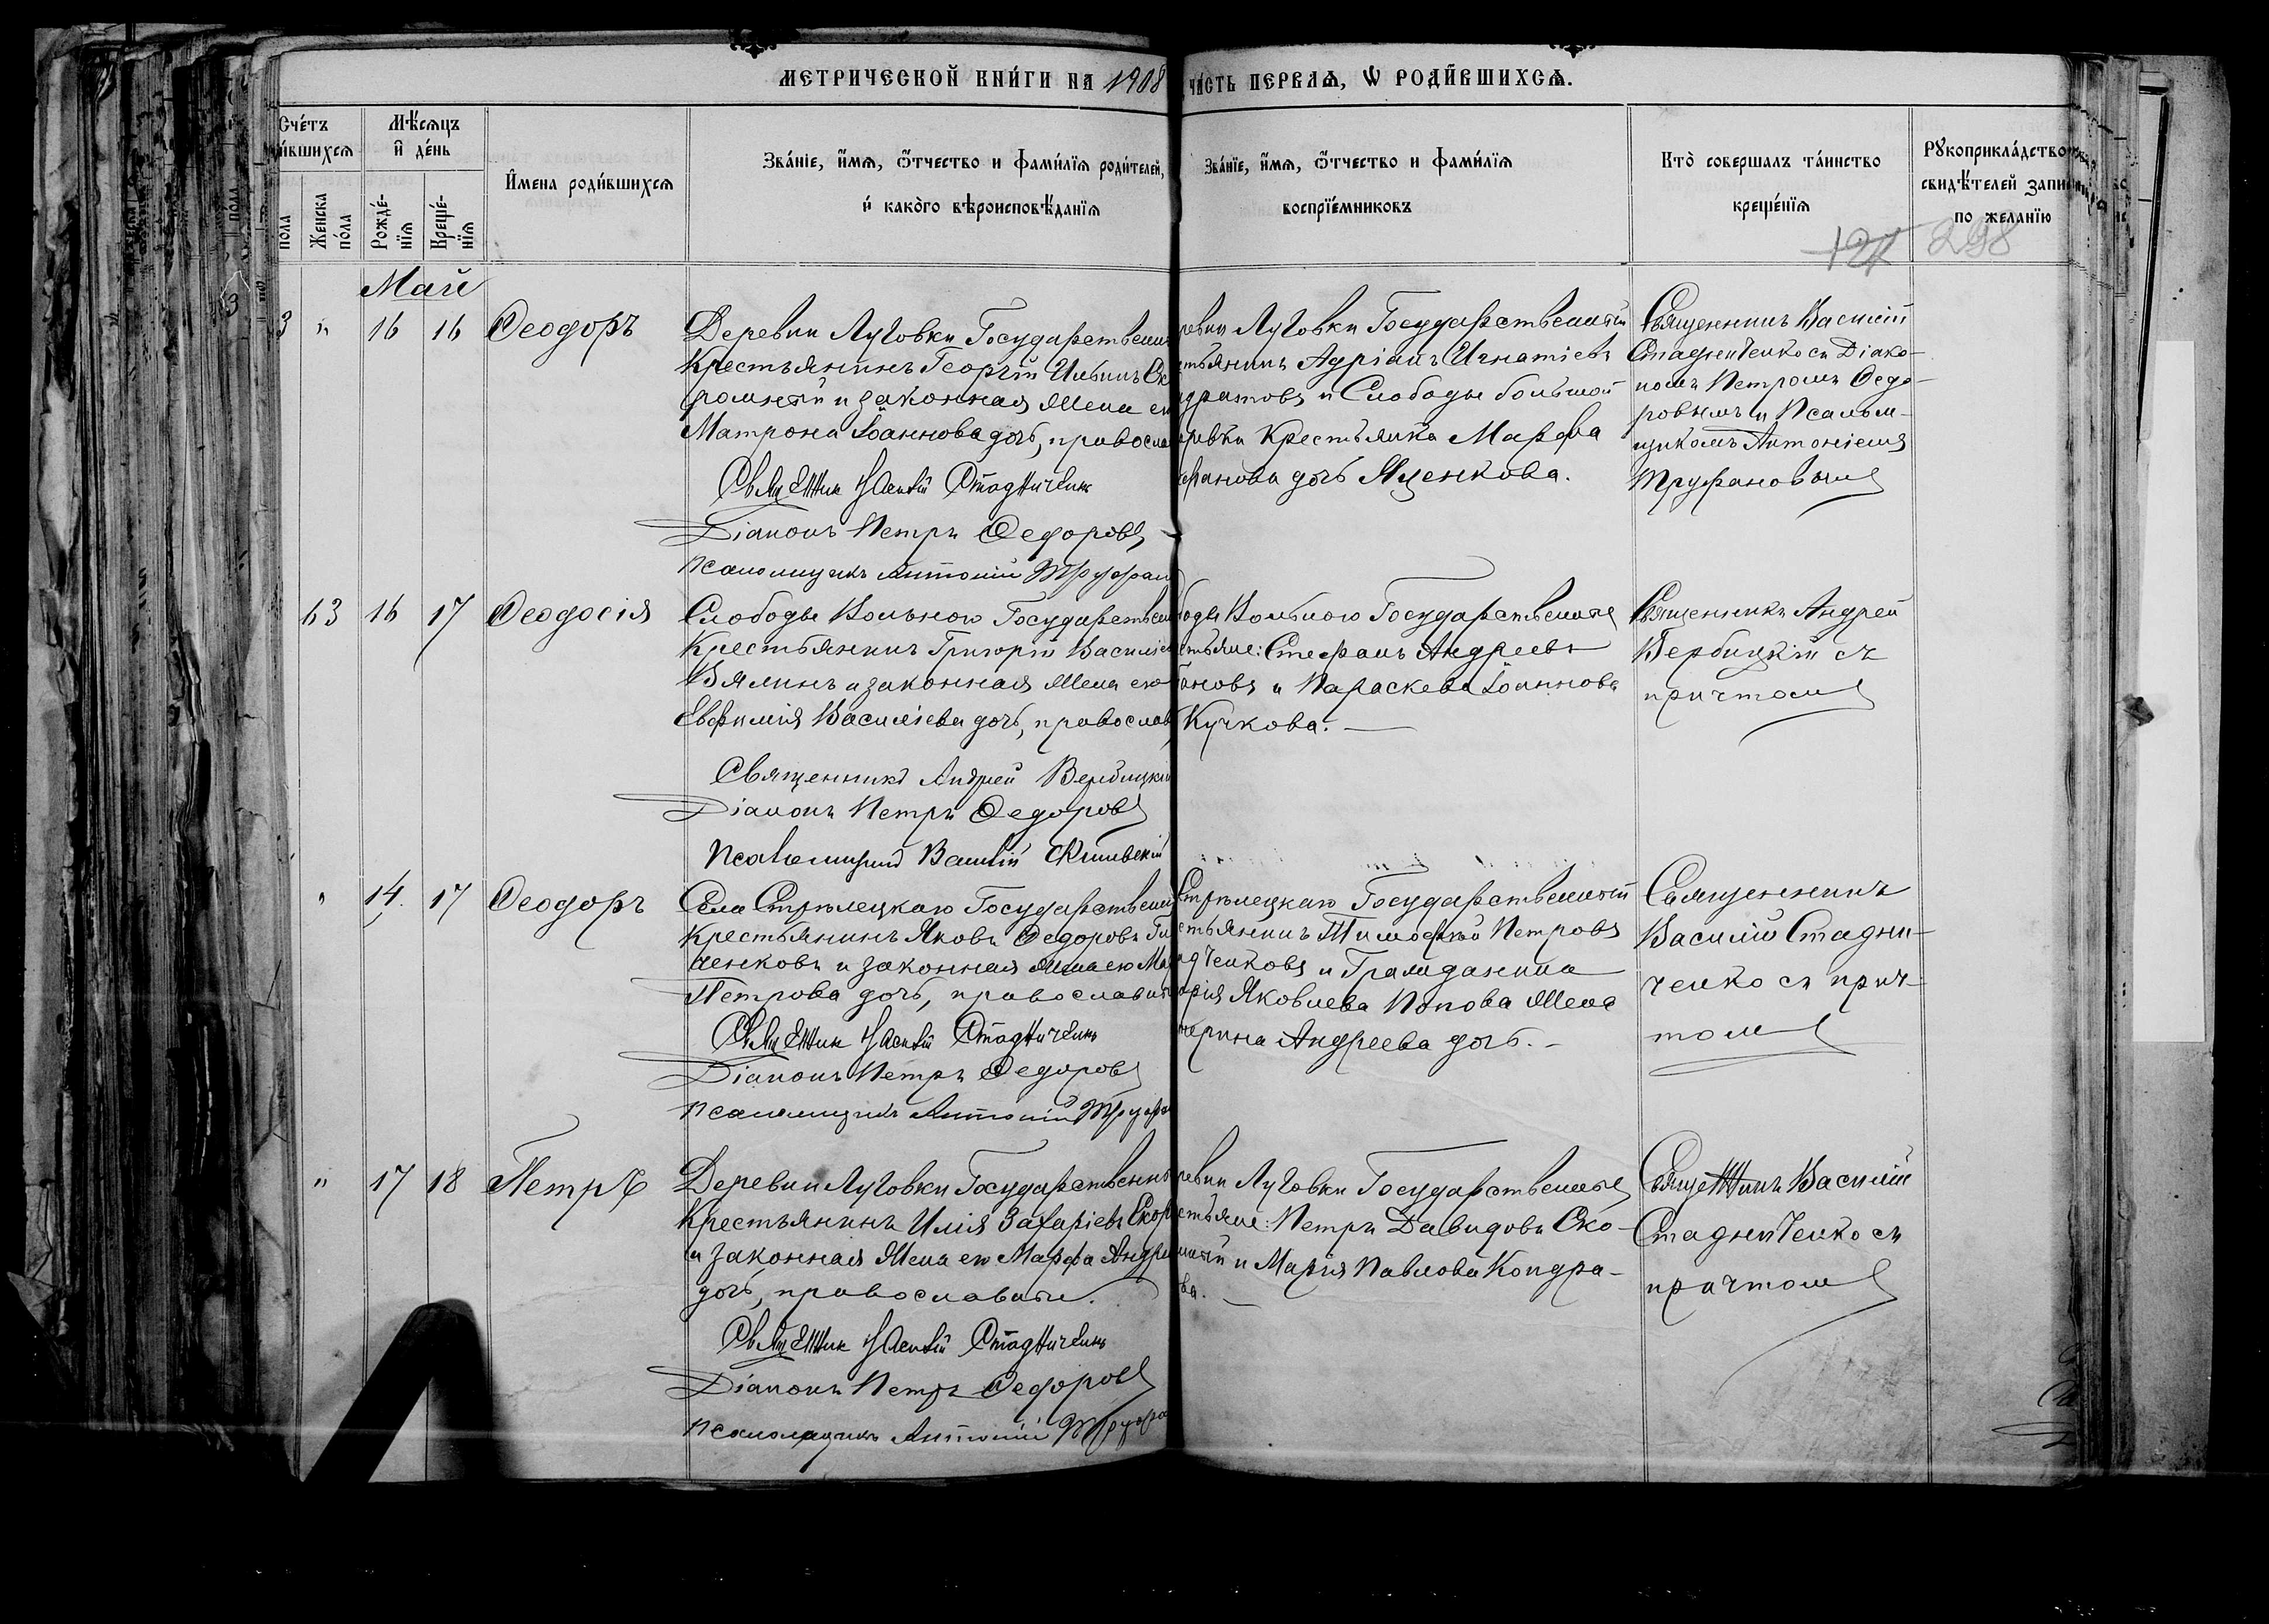 МЕТРИЧЕСКОЙ КНИ́ГИ НА 1908
ЧА́СТЬ ПЕРВАѦ, Ѡ РОДИ́ВШИХСѦ.
Сче́тъ
и́вшихсѧ
Мѣ́сѧцъ
и де́нь
И҆мена роди́вшихсѧ
Зва́нїе, и҆́мѧ, ѻ҆́тчество и фами́лїѧ роди́телей,
и҆ како́го вѣроисповѣ́данїѧ
Зва́нїе, и҆́мѧ, ѻ҆́тчество и фами́лїѧ
воспрїе́мниковъ
Кто̀ соверша́лъ та́инство
креще́нїѧ
Рꙋкоприкла́дство
свидѣ́телей запи
по жела́нїю
пола
Женска по́ла
Рожде́-нїѧ
Креще́-нїѧ
127 298
Май
3 " 16 16 Ѳеодоръ
Деревни Луговки Государствен
Крестьянинъ Георгій Ильинъ Ск
ромный и законная жена ег
Матрона Іоаннова дочь, правосла
Священник Василій Стадниченк
Діаконъ Петръ Ѳедоровъ
Псаломщикъ Антоній Труфан
ревни Луговки Государственный
стьянинъ Адріанъ Игнатіевъ
дратовъ и Слободы большой
ровки Крестьянка Марфа
фанова дочь Яценкова.
Священникъ Василій
Стадниченко съ Діако-
номъ Петромъ Ѳедо-
ровымъ и Псалом-
щикомъ Антоніемъ
Труфановымъ
63 16 17 Ѳеодосія
Слободы Вольного Государствен
Крестьянинъ Григорій Василіе
Вялинъ и законная жена его
Евфимія Василіева дочь, православ
Священникъ Андрей Вербицкій
Діаконъ Петръ Ѳедоровъ
Псаломщикъ Василій
боды Вольного Государственные
стьяне: Стефанъ Андреевъ
ановъ и Параскева Іоаннова
Кучкова.
Священникъ Андрей
Вербицкій съ
причтомъ
" 14. 17 Ѳеодоръ
Села Стрѣлецкаго Государствен
Крестьянинъ Яковъ Ѳедоровъ
ченковъ и законная жена его Ма
Петрова дочь, православны
Священник Василій Стадниченк
Діаконъ Петръ Ѳедоровъ
Псаломщикъ Антоній Труфа
Стрѣлецкаго Государственный
стьянинъ Тимоѳей Петровъ
дченковъ и Гражданина
орія Яковлева Попова жена
терина Андреева дочь.
Священникъ
Василій Стадни-
ченко съ прич-
томъ
" 17 18 Петръ
Деревни Луговки Государственны
Крестьянинъ Илія Захаріевъ Скор
и законная жена его Марфа Андре
дочь, православные.
Священник Василій Стадниченк
Діаконъ Петръ Ѳедоровъ
Псаломщикъ Антоній Труфа
ревни Луговки Государственные
стьяне: Петръ Давидовъ Ско-
мный и Марія Павлова Кондра-
ва.
Священникъ Василій
Стадниченко съ
причтомъ